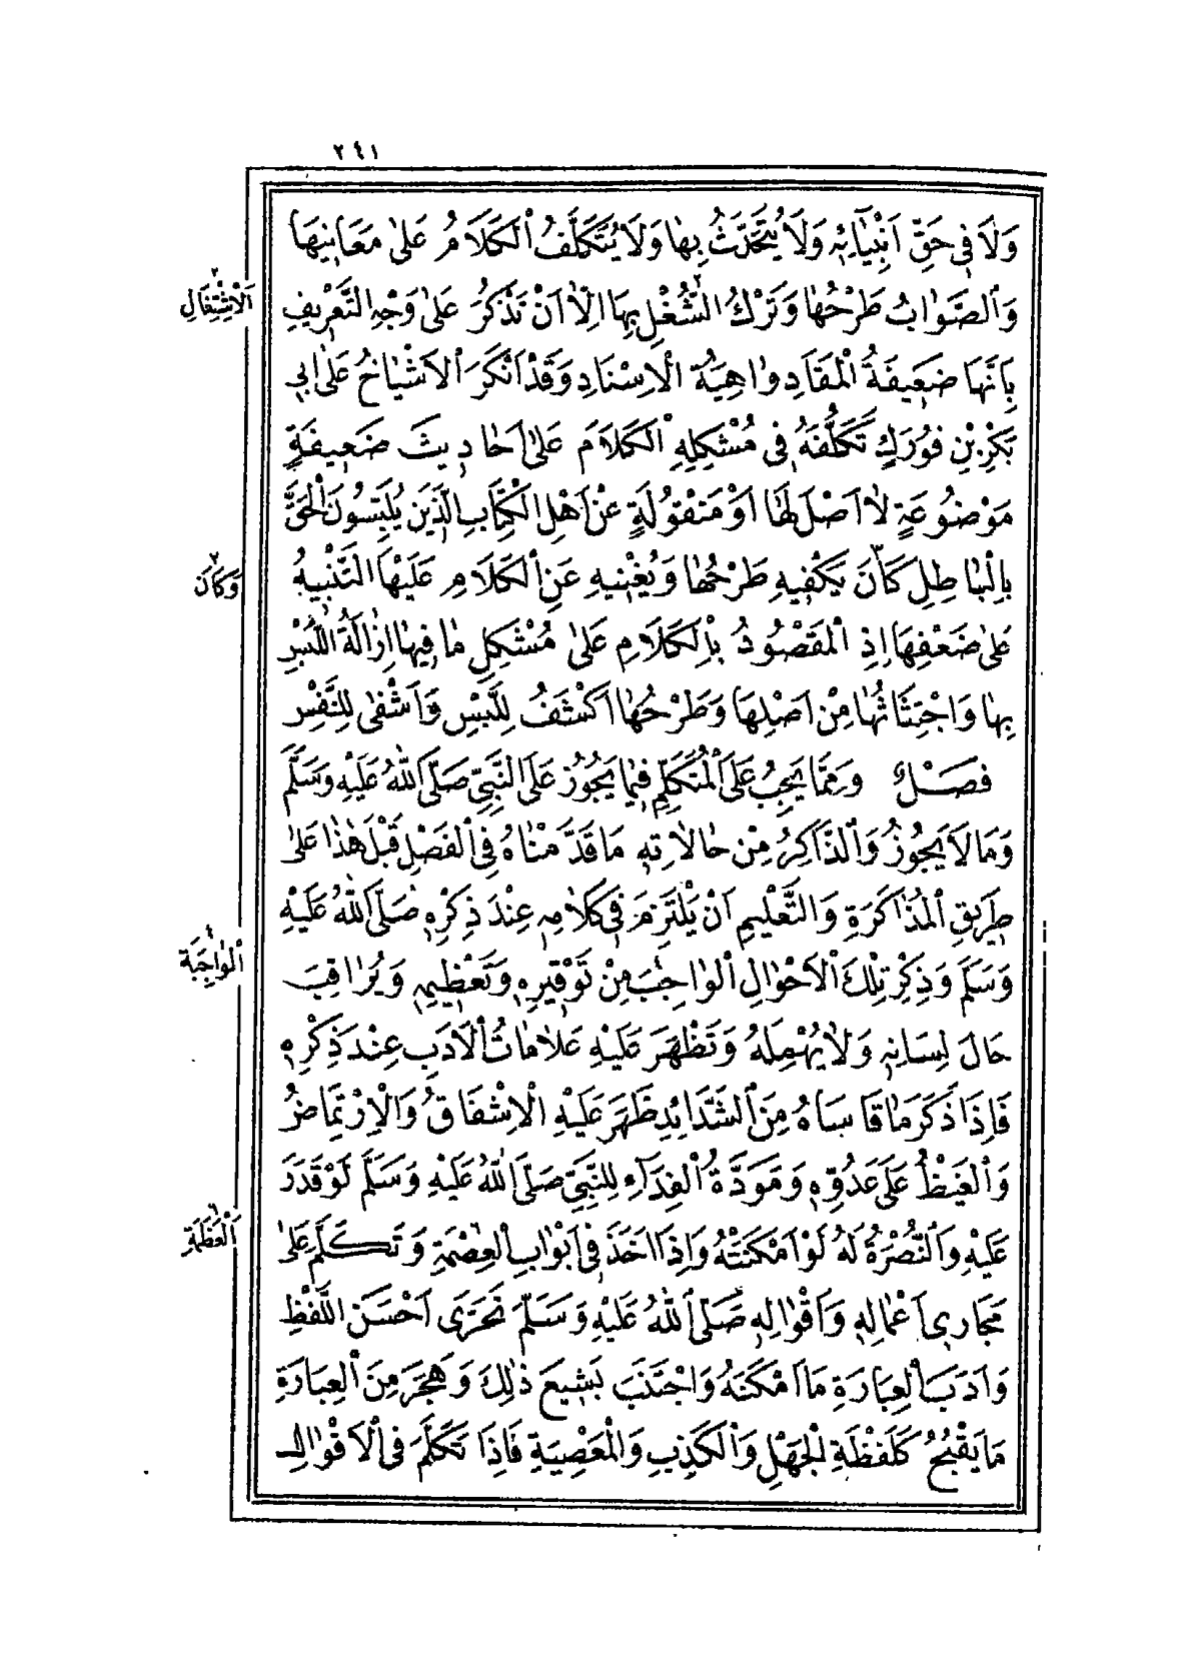 ٢٤١
وَلَا فِي حَقِّ اَنْبِيَائِهِ وَلَا يُتَحَدَّثُ بِهَا وَلَا يُتَكَلَّفُ الْكَلَامُ عَلٰى مَعَانِيهَا
وَالصَّوَابُ طَرْحُهَا وَتَرْكُ الشُّغْلِ بِهَا اِلَّا اَنْ تُذْكَرَ عَلٰى وَجْهِ التَّعْرِيفِ
الْاِشْتِغَالِ
بِاَنَّهَا ضَعِيفَةُ الْمَقَادِ وَاهِيَةُ الْاِسْنَادِ وَقَدْ اَنْكَرَ الْاَشْيَاخُ عَلٰى اَبِي
بَكْرِ بْنِ فُورَكٍ تَكَلُّفَهُ فِي مُشْكِلِهِ الْكَلَامَ عَلٰى اَحَادِيثَ ضَعِيفَةٍ
مَوْضُوعَةٍ لَا اَصْلَ لَهَا اَوْ مَنْقُولَةٍ عَنْ اَهْلِ الْكِتَابِ الَّذِينَ يُلَبِّسُونَ الْحَقَّ
بِالْبَاطِلِ كَانَ يَكْفِيهِ طَرْحُهَا وَيُغْنِيهِ عَنِ الْكَلَامِ عَلَيْهَا التَّنْبِيهُ
وَكَانَ
عَلٰى ضَعْفِهَا اِذِ الْمَقْصُودُ بِالْكَلَامِ عَلٰى مُشْكِلِ مَا فِيهَا اِزَالَةُ اللَّبْسِ
بِهَا وَاجْتِثَاثُهَا مِنْ اَصْلِهَا وَطَرْحُهَا اَكْشَفُ لِلَّبْسِ وَاَشْفٰى لِلنَّفْسِ
فَصْلٌ وَمِمَّا يَجِبُ عَلَى الْمُتَكَلِّمِ فِيمَا يَجُوزُ عَلَى النَّبِيِّ صَلَّى اللّٰهُ عَلَيْهِ وَسَلَّمَ
وَمَا لَا يَجُوزُ وَالذَّاكِرُ مِنْ حَالَاتِهِ مَا قَدَّمْنَاهُ فِي الْفَصْلِ قَبْلَ هٰذَا عَلٰى
طَرِيقِ الْمُذَاكَرَةِ وَالتَّعْلِيمِ اَنْ يَلْتَزِمَ فِي كَلَامِهِ عِنْدَ ذِكْرِهِ صَلَّى اللّٰهُ عَلَيْهِ
وَسَلَّمَ وَذِكْرِ تِلْكَ الْاَحْوَالِ الْوَاجِبَ مِنْ تَوْقِيرِهِ وَتَعْظِيمِهِ وَيُرَاقِبَ
الْوَاجِبَةَ
حَالَ لِسَانِهِ وَلَا يُهْمِلَهُ وَتَظْهَرَ عَلَيْهِ عَلَامَاتُ الْاَدَبِ عِنْدَ ذِكْرِهِ
فَاِذَا ذَكَرَ مَا قَاسَاهُ مِنَ الشَّدَائِدِ ظَهَرَ عَلَيْهِ الْاِشْفَاقُ وَالْاِرْتِمَاضُ
وَالْغَيْظُ عَلٰى عَدُوِّهِ وَمَوَدَّةُ الْفِدَاءِ لِلنَّبِيِّ صَلَّى اللّٰهُ عَلَيْهِ وَسَلَّمَ لَوْ قَدَرَ
عَلَيْهِ وَالنُّصْرَةُ لَهُ لَوْ اَمْكَنَتْهُ وَاِذَا اَخَذَ فِي اَبْوَابِ الْعِصْمَةِ وَتَكَلَّمَ عَلٰى
الْعَظَمَةِ
مَجَارِي اَعْمَالِهِ وَاَقْوَالِهِ صَلَّى اللّٰهُ عَلَيْهِ وَسَلَّمَ تَحَرّٰى اَحْسَنَ اللَّفْظِ
وَاَدَبَ الْعِبَارَةِ مَا اَمْكَنَهُ وَاجْتَنَبَ بَشِيعَ ذٰلِكَ وَهَجَرَ مِنَ الْعِبَارَةِ
مَا يَقْبُحُ كَلَفْظَةِ الْجَهْلِ وَالْكَذِبِ وَالْمَعْصِيَةِ فَاِذَا تَكَلَّمَ فِي الْاَقْوَالِ